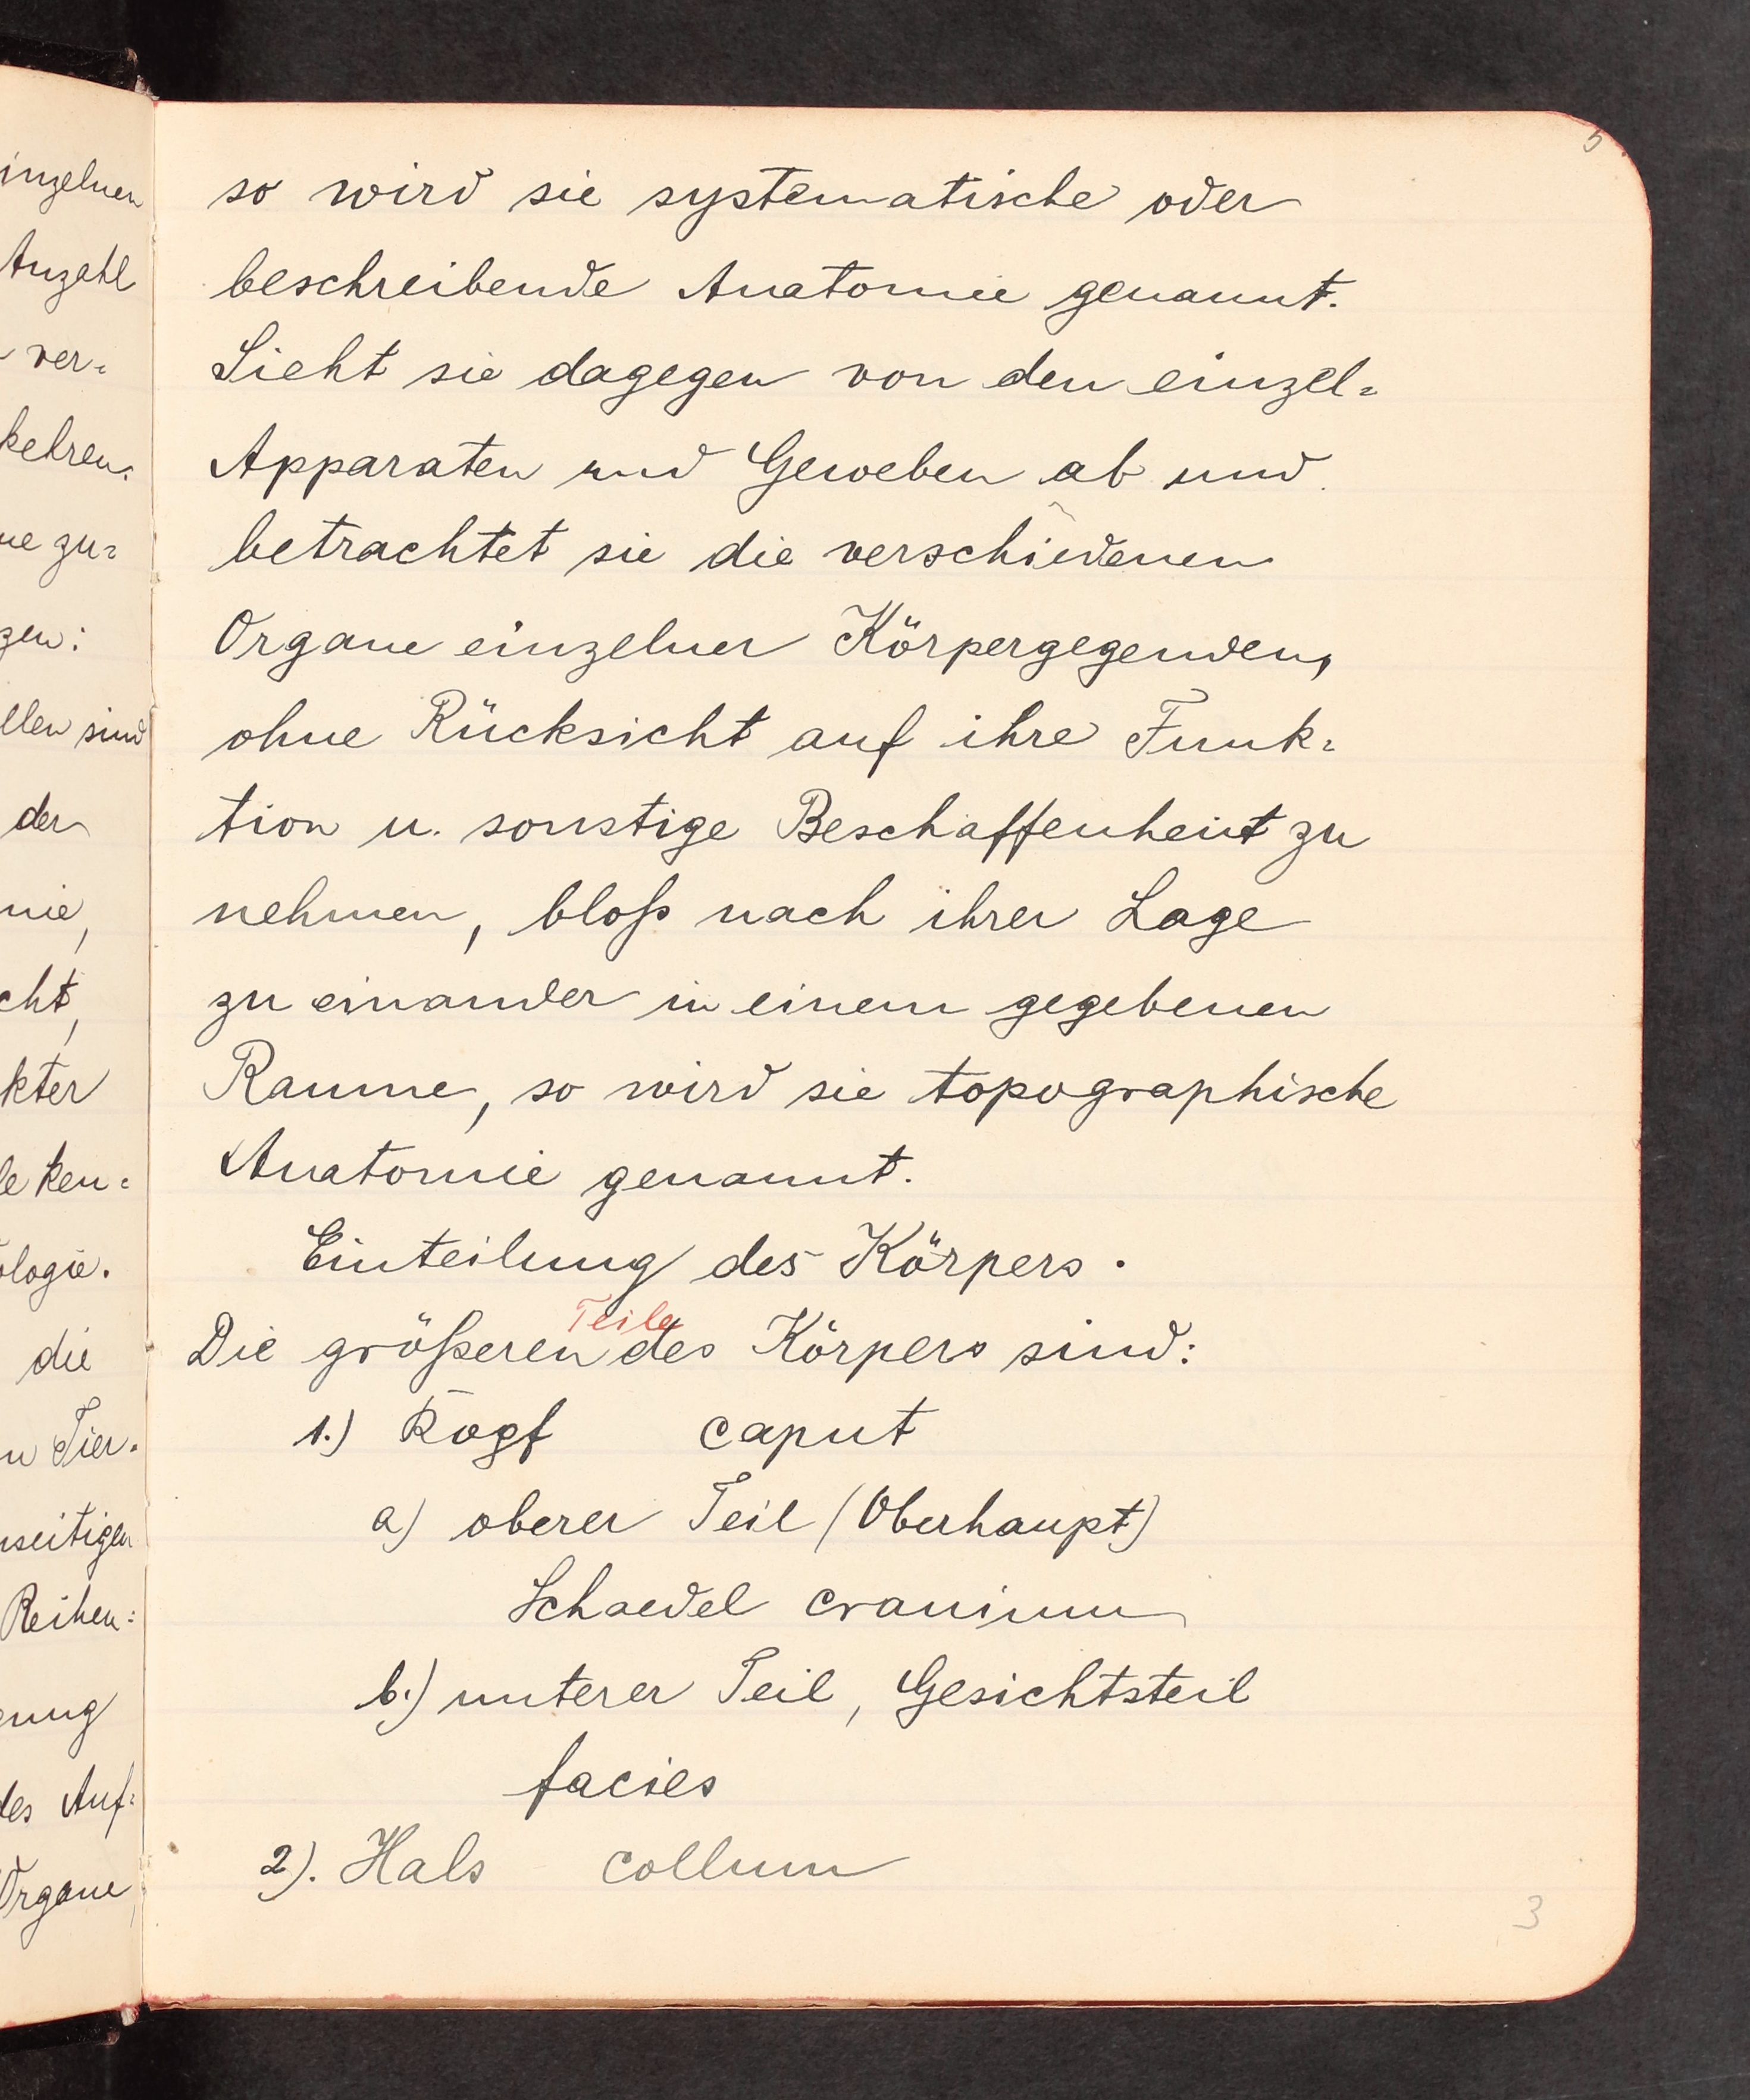 5
so wird sie systematische oder
beschreibende Anatomie genannt.
Sieht sie dagegen von den einzel=
Apparaten und Geweben ab und
betrachtet sie die verschiedenen
Organe einzelner Körpergegenden,
ohne Rücksicht auf ihre Funk=
tion u. sonstige Beschaffenheit zu
nehmen, bloß nach ihrer Lage
zu einander in einem gegebenen
Raume, so wird sie topographische
Anatomie genannt.
Einteilung des Körpers.
Teile
Die größeren des Körpers sind:
1.) Kopf caput
a) oberer Teil (Oberhaupt)
Schaedel cranium
b.) unterer Teil, Gesichtsteil
facies
2). Hals collum
3
inzelnen
Anzahl
ver=
kehren.
ne zu=
gen:
llen sind
der
mie,
cht,
kter
le ken=
ologie.
die
n Tier=
nseitigen
Reihen=
gung
des Auf=
Organe,